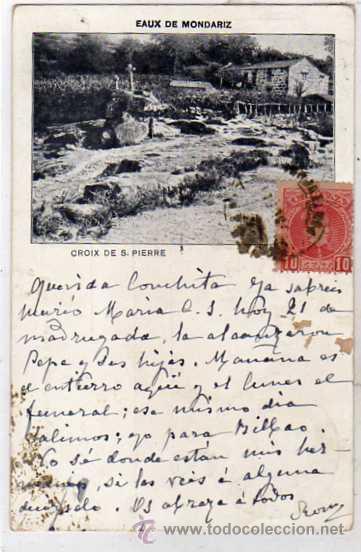 EAUX DE MONDARIZ
CROIX DE S. PIERRE
10 10
Querida Conchita ya sabreis
murió Maria C. S. hoy 21 de
madrugada, la alcanzaron
Pepe y sus hijas. Mañana es
el entierro aquí y el lunes el
funeral; ese mismo dia
salimos; yo para Bilbao.
No sé donde están mis her
si las veis á alguna
Os abraza á todos
www.todocoleccion.net